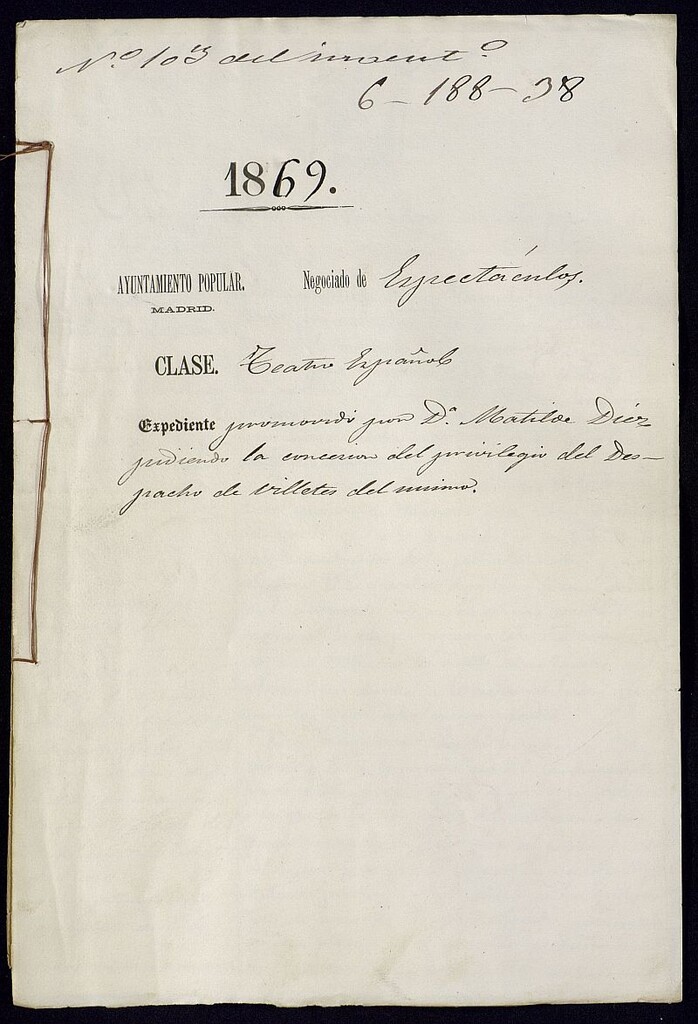 N.º 103 del invent.º
6-188-38
1869.
AYUNTAMIENTO POPULAR. Negociado de Espectáculos.
MADRID.
CLASE. Teatro Español
Expediente promovido por D.ª Matilde Díez
pidiendo la concesion del privilegio del Des-
pacho de villetes del mismo.